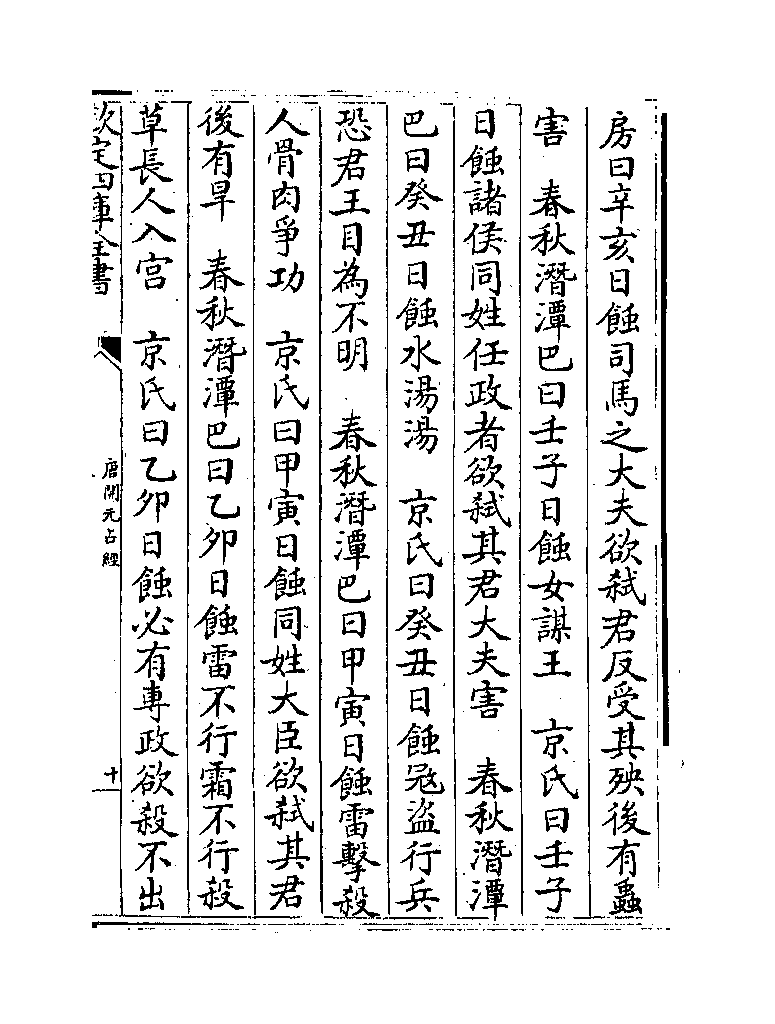 房曰辛亥日蝕司馬之大夫欲弑君反受其殃後有蟲
害　春秋潛潭巴曰壬子日蝕女謀王　京氏曰壬子
日蝕諸侯同姓任政者欲弑其君大夫害　春秋潛潭
巴曰癸丑日蝕水湯湯　京氏曰癸丑日蝕冦盜行兵
恐君王目為不明　春秋潛潭巴曰甲寅日蝕雷擊殺
人骨肉爭功　京氏曰甲寅日蝕同姓大臣欲弑其君
後有旱　春秋潛潭巴曰乙卯日蝕雷不行霜不行殺
草長人入宫　京氏曰乙卯日蝕必有專政欲殺不出
欽定四庫全書
唐開元占經
十